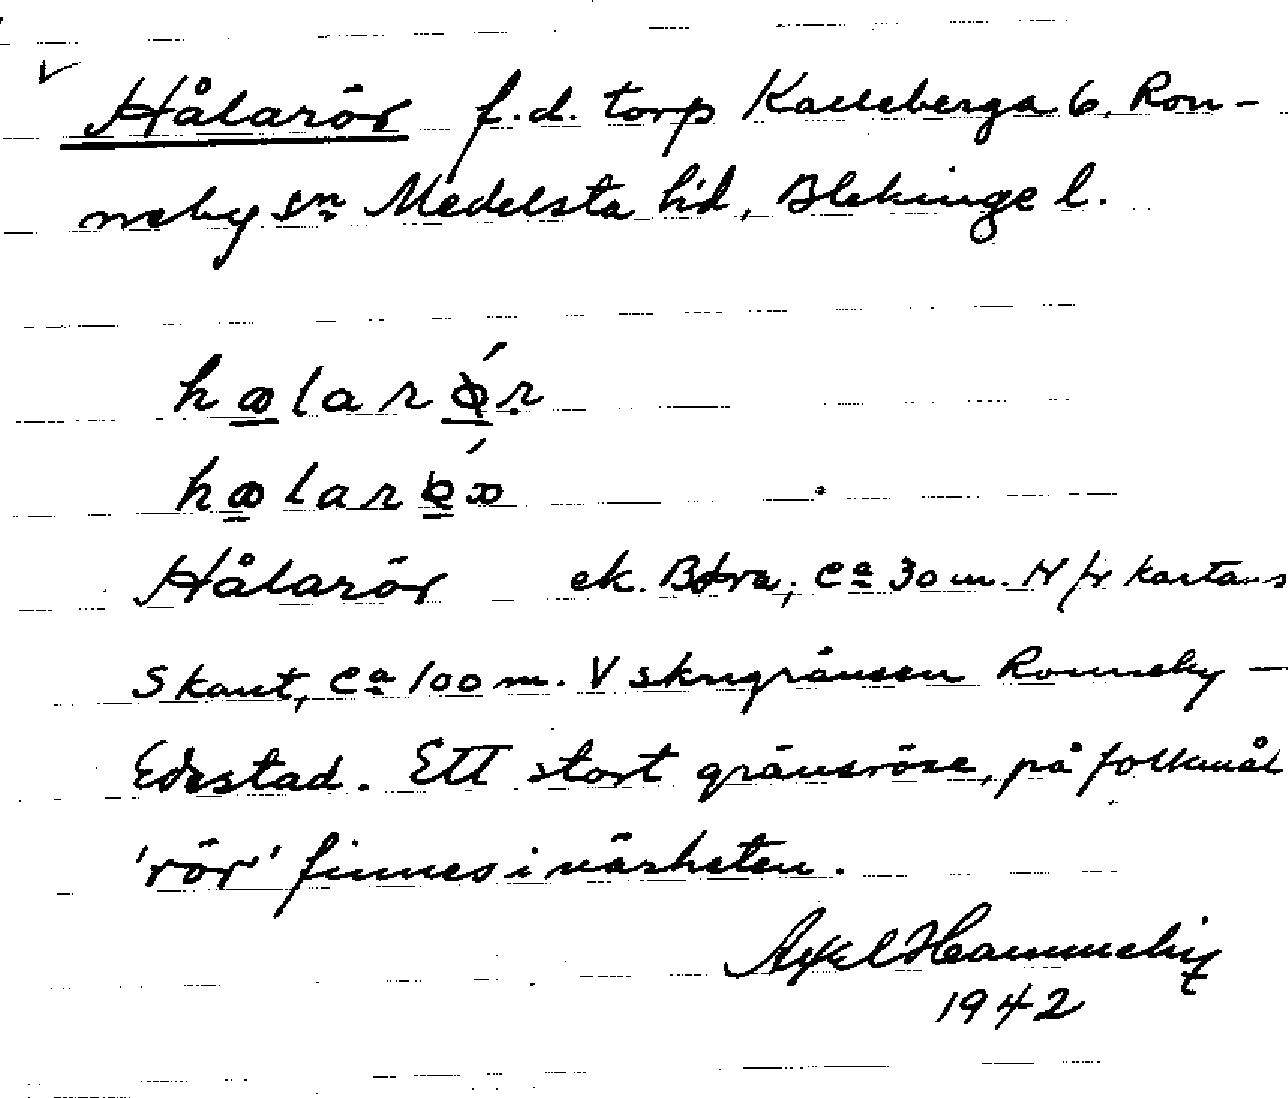 Hålarör f.d. torp Kalleberga 6, Ron-
neby sn Medelsta hd, Blekinge l.
Hålarör ek. Bdra; ca 30 m. N fr kartans
S kant, ca 100 m. V skngränsen Ronneby —
Edestad. Ett stort gränsröse, på folkmål
'rör' finnes i närheten.
Axel Hammeby
1942